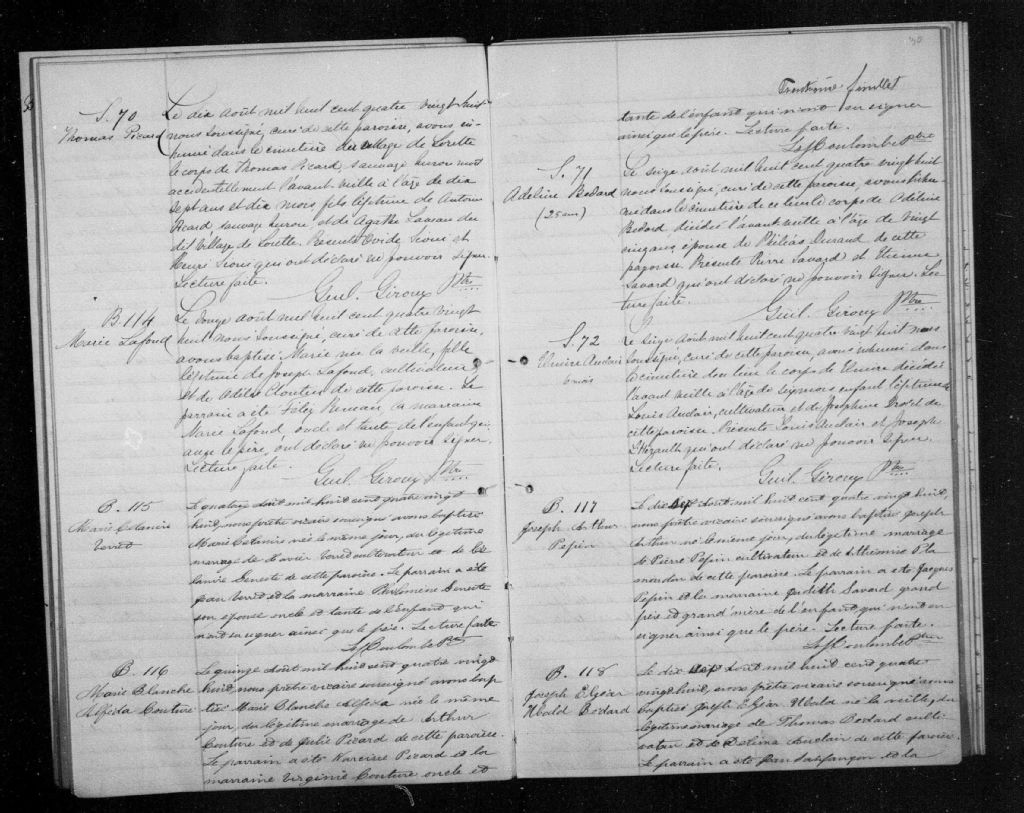 S. 70
Thomas Picard
Le dix août mil huit cent quatre vingt huit
nous soussigné, curé de cette paroisse, avons in-
humé dans le cimetière du village de Lorette
le corps de Thomas Picard, sauvage huron mort
accidentellement l'avant veille à l'âge de dix
sept ans et dix mois fils légitime de Antoine
Picard sauvage huron, et de Agathe du
dit village de Lorette. Présents Ovide Sioui et
Henri Sioui qui ont déclaré ne pouvoir signer.
Lecture faite.
Guil. Giroux Ptre
B. 114
Marie Lafond
Le douze août mil huit cent quatre vingt
huit nous soussigné, curé de cette paroisse,
avons baptisé Marie née la veille, fille
légitime de Joseph Lafond, cultivateur
et de Adèle Cloutier de cette paroisse. Le
parrain a été Félix la marraine
Marie Lafond, oncle et tante de l'enfant qui
ainsi le père, ont déclaré ne pouvoir signer.
Lecture faite.
Guil. Giroux Ptre
B. 115
Marie
Verret
Le quatorze août mil huit cent quatre vingt
huit, nous prêtre vicaire soussigné avons baptisé
Marie née le même jour, du légitime
mariage de Xavier Verret cultivateur et de
de cette paroisse. Le parrain a été
Jean Verret et la marraine Philomène
son épouse oncle et tante de l'enfant qui
n'ont su signer ainsi que le père. Lecture faite
Ls Coulombe Ptre
B. 116
Marie Blanche
Alféda Couture
Le quinze août mil huit cent quatre vingt
huit, nous prêtre vicaire soussigné avons bap-
tisé Marie Blanche Alféda née le même
jour, du légitime mariage de Arthur
Couture et de Julie Picard de cette paroisse.
Le parrain a été Narcisse Picard et la
marraine Virginie Couture oncle et
30
Trentième feuillet
tante de l'enfant qui n'ont su signer
ainsi que le père. Lecture faite.
Ls Coulombe Ptre
S. 71
Adeline Bedard
(25 ans)
Le seize août mil huit cent quatre vingt huit
nous soussigné, curé de cette paroisse, avons inhu-
mé dans le cimetière de ce lieu le corps de Adeline
Bedard décédée l'avant veille à l'âge de vingt
cinq ans épouse de Pléléas Durand de cette
paroisse. Présents Pierre Savard et Etienne
Savard qui ont déclaré ne pouvoir signer. Lec-
ture faite.
Guil. Giroux Ptre
S. 72
Elmire Auclair
6 mois
Le seize août mil huit cent quatre vingt huit nous
soussigné, curé de cette paroisse, avons inhumé dans
le cimetière du lieu le corps de Elmire décédée
l'avant veille à l'âge de six mois enfant légitime de
Louis Auclair, cultivateur et de Joséphine Drolet de
cette paroisse. Présents Louis Auclair et Joseph
L'Heureux qui ont déclaré ne pouvoir signer.
Lecture faite.
Guil. Giroux Ptre
B. 117
Joseph Arthur
Pepin
Le dix sept août mil huit cent quatre vingt huit,
nous prêtre vicaire soussigné avons baptisé Joseph
Arthur né le même jour, du légitime mariage
de Pierre Pepin cultivateur et de Arthémise Pla-
mondon de cette paroisse. Le parrain a été Jacques
Pepin et la marraine Judith Savard grand
père et grand'mère de l'enfant qui n'ont su
signer ainsi que le père. Lecture faite.
Ls Coulombe Ptre
B. 118
Joseph Elzéar
Ubald Bedard
Le dix sept août mil huit cent quatre
vingt huit, nous prêtre vicaire soussigné avons
baptisé Joseph Elzéar Ubald né la veille, du
légitime mariage de Thomas Bedard culti-
vateur et de Delima Auclair de cette paroisse.
Le parrain a été Jean et la